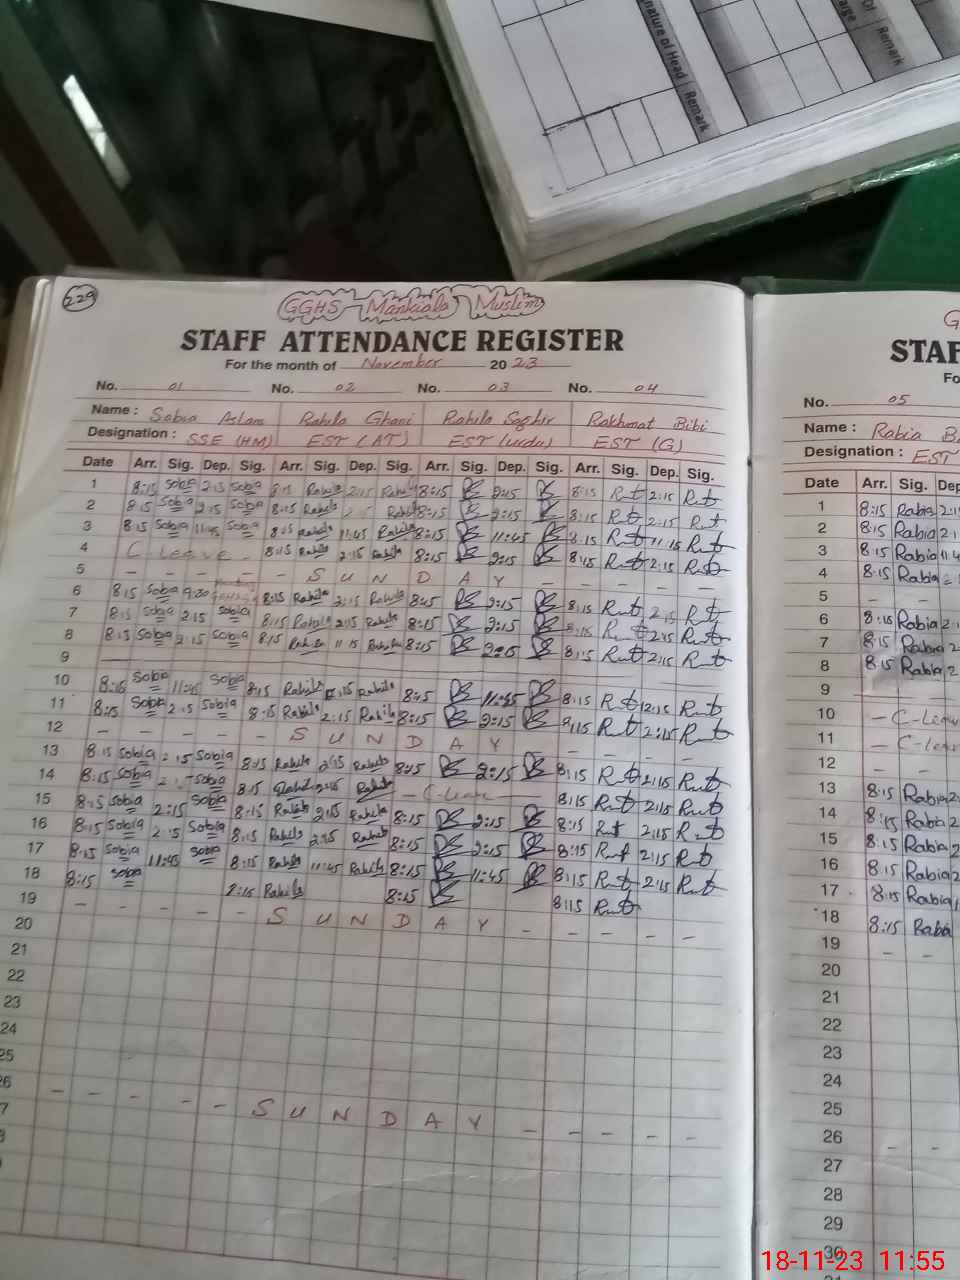 nature of Head Remark
Of
arge
Remark
229
GGHS Mankiala Muslim
STAFF ATTENDANCE REGISTER
For the month of November 2023
No. 01 No. 02 No. 03 No. 04
Name : Sobia Aslam Rahila Ghani Rahila Saghir Rakhmat Bibi
Designation : SSE (HM) EST (AT) EST (urdu) EST (G)
Date Arr. Sig. Dep. Sig. Arr. Sig. Dep. Sig. Arr. Sig. Dep. Sig. Arr. Sig. Dep. Sig.
1 8:15 Sobia 2:15 Sobia 8:15 Rahila 2:15 Rahila 8:15 2:15 8:15 2:15
2 8:15 Sobia 2:15 Sobia 8:15 Rahila Rahila 8:15 2:15 8:15 2:15
3 8:15 Sobia 11:45 Sobia 8:15 Rahila 11:45 Rahila 8:15 11:45 8:15 11:15
4 C Leave 8:15 Rahila 2:15 Rahila 8:15 2:15 8:15 2:15
5 - - - - - S U N D A Y - - - - -
6 8:15 Sobia 9:30 8:15 Rahila 2:15 Rahila 8:15 2:15 8:15 2:15
7 8:15 Sobia 2:15 Sobia 8:15 Rahila 2:15 Rahila 8:15 2:15 8:15 2:15
8 8:15 Sobia 2:15 Sobia 8:15 Rahila 11:15 Rahila 8:15 2:15 8:15 2:15
9
10 8:15 Sobia 11:45 Sobia 8:15 Rahila Rahila 8:15 11:45 8:15 2:15
11 8:15 Sobia 2:15 Sobia 8:15 Rahila 2:15 Rahila 8:15 2:15 2:15
12 - - - - - S U N D A Y - -
13 8:15 Sobia 2:15 Sobia 8:15 Rahila 2:15 Rahila 8:15 2:15 8:15 2:15
14 8:15 Sobia Sobia 8:15 Rahila 2:15 Rahila - C-Leave - 8:15 2:15
15 8:15 Sobia 2:15 Sobia 8:15 Rahila 2:15 Rahila 8:15 2:15 8:15 2:15
16 8:15 Sobia 2:15 Sobia 8:15 Rahila 2:15 Rahila 8:15 2:15 8:15 2:15
17 8:15 Sobia 11:45 Sobia 8:15 Rahila 11:45 Rahila 8:15 11:45 8:15 2:15
18 8:15 Sobia Rahila 8:15 8:15
19 - - - - - S U N D A Y - - - - -
20
21
22
23
24
25
26 - - - - - S U N D A Y - - - - -
G
STAF
Fo
No. 05
Name : Rabia B
Designation : EST
Date Arr. Sig. Dep
1 8:15 Rabia 2:1
2 8:15 Rabia 2:1
3 8:15 Rabia 11:4
4 8:15 Rabia 2:
5 - -
6 8:15 Rabia 2:1
7 8:15 Rabia 2:
8 8:15 Rabia 2
9
10 - C-Leav
11 - C-leav
12 - -
13 8:15 Rabia 2
14 8:15 Rabia 2
15 8:15 Rabia 2
16 8:15 Rabia 2
17 8:15 Rabia 1
18 8:15 Rabia
19 - -
20
21
22
23
24
25
26 - -
27
28
29
30
18-11-23 11:55